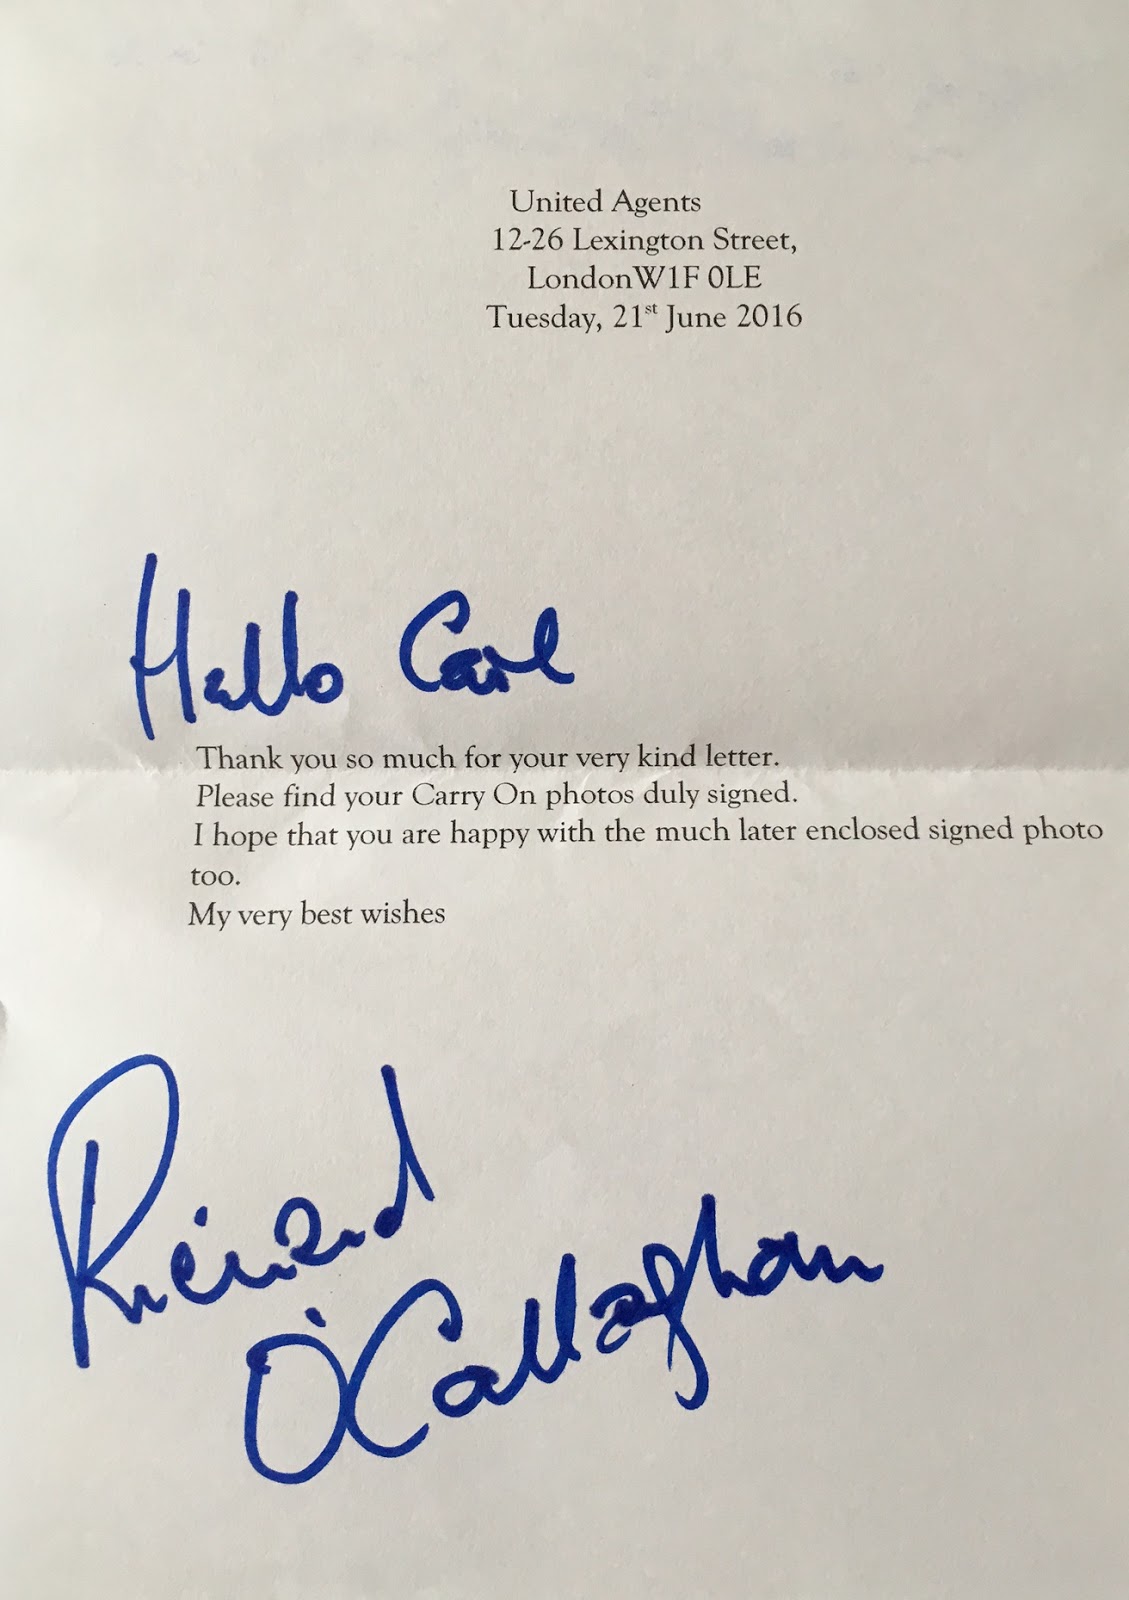 United Agents
12-26 Lexington Street,
LondonW1F 0LE
Tuesday, 21st June 2016
Hello Carl
Thank you so much for your very kind letter.
Please find your Carry On photos duly signed.
I hope that you are happy with the much later enclosed signed photo
too.
My very best wishes
Richard
O'Callaghan